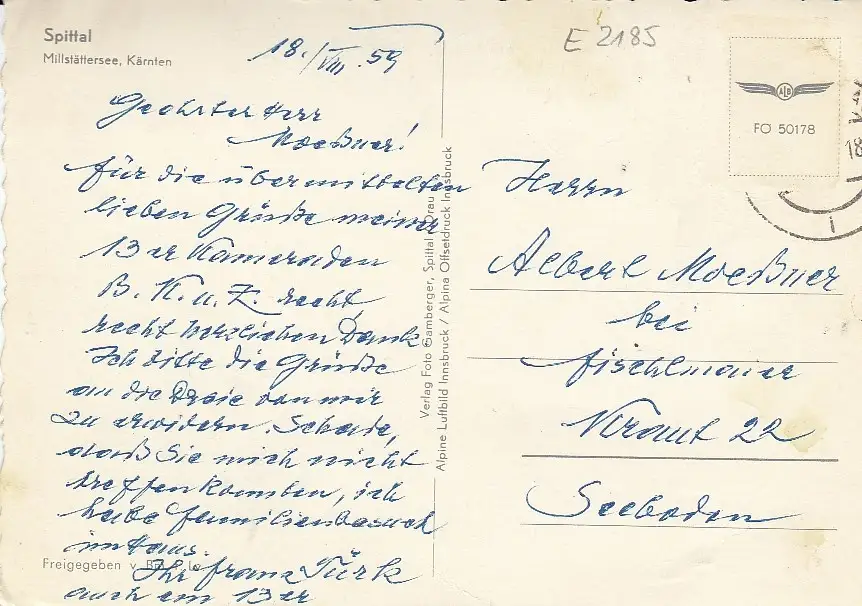 Spittal
Millstättersee, Kärnten
18./VIII.59
Geehrter Herr
Moeßner!
für die übermittelten
lieben Grüße meiner
13er Kameraden
B. K. u. Z. recht,
recht herzlichen Dank
Ich bitte die Grüße
an die Dreie von mir
zu erwidern. Schade,
daß Sie mich nicht
treffen konnten, ich
habe Familienbesuch
im Haus.
Ihr Franz Türk
auch ein 13er
Freigegeben v.
Verlag Foto Gamberger, Spittal Drau
Alpine Luftbild Innsbruck / Alpina Offsetdruck Innsbruck
E 2185
ALB
FO 50178
18
Herrn
Albert Moeßner
bei
Fischlmaier
Kraut 22
Seeboden